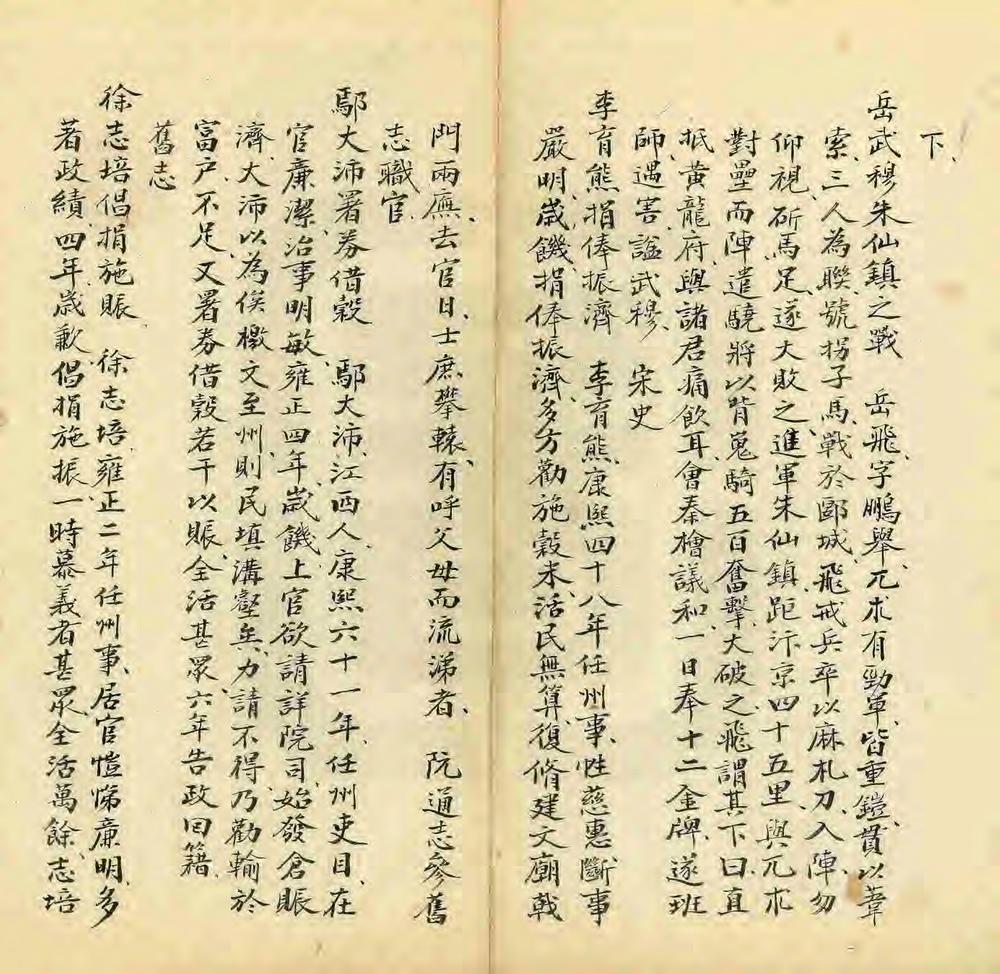 下、
岳武穆朱仙鎮之戰　岳飛、字鵬舉、兀朮有勁軍、皆重鎧、貫以韋
索、三人為聯、號拐子馬、戰於郾城、飛戒兵卒以麻札刀入陣、勿
仰視、斫馬足、遂大敗之、進軍朱仙鎮、距汴京四十五里、與兀朮
對壘而陣、遣驍將以背嵬騎五百奮擊、大破之、飛謂其下曰、直
抵黃龍府、與諸君痛飲耳、會秦檜議和、一日奉十二金牌、遂班
師、遇害、諡武穆、　宋史
李育熊捐俸振濟　李育熊、康熙四十八年任州事、性慈惠、斷事
嚴明、歲饑捐俸振濟、多方勸施穀米、活民無算、復脩建文廟戟
門兩廡、去官日、士庶攀轅、有呼父母而流涕者、　阮通志參舊
志職官、
鄢大沛署券借穀　鄢大沛、江西人、康熙六十一年、任州吏目、在
官廉潔、治事明敏、雍正四年、歲饑、上官欲請詳院司、始發倉賑
濟、大沛以為俟檄文至州、則民填溝壑矣、力請不得、乃勸輸於
富户、不足、又署券借穀若干以賑、全活甚眾、六年告政回籍、
舊志
徐志培倡捐施賑　徐志培、雍正二年任州事、居官愷悌廉明、多
著政績、四年、歲歉、倡捐施振、一時慕義者甚眾、全活萬餘、志培